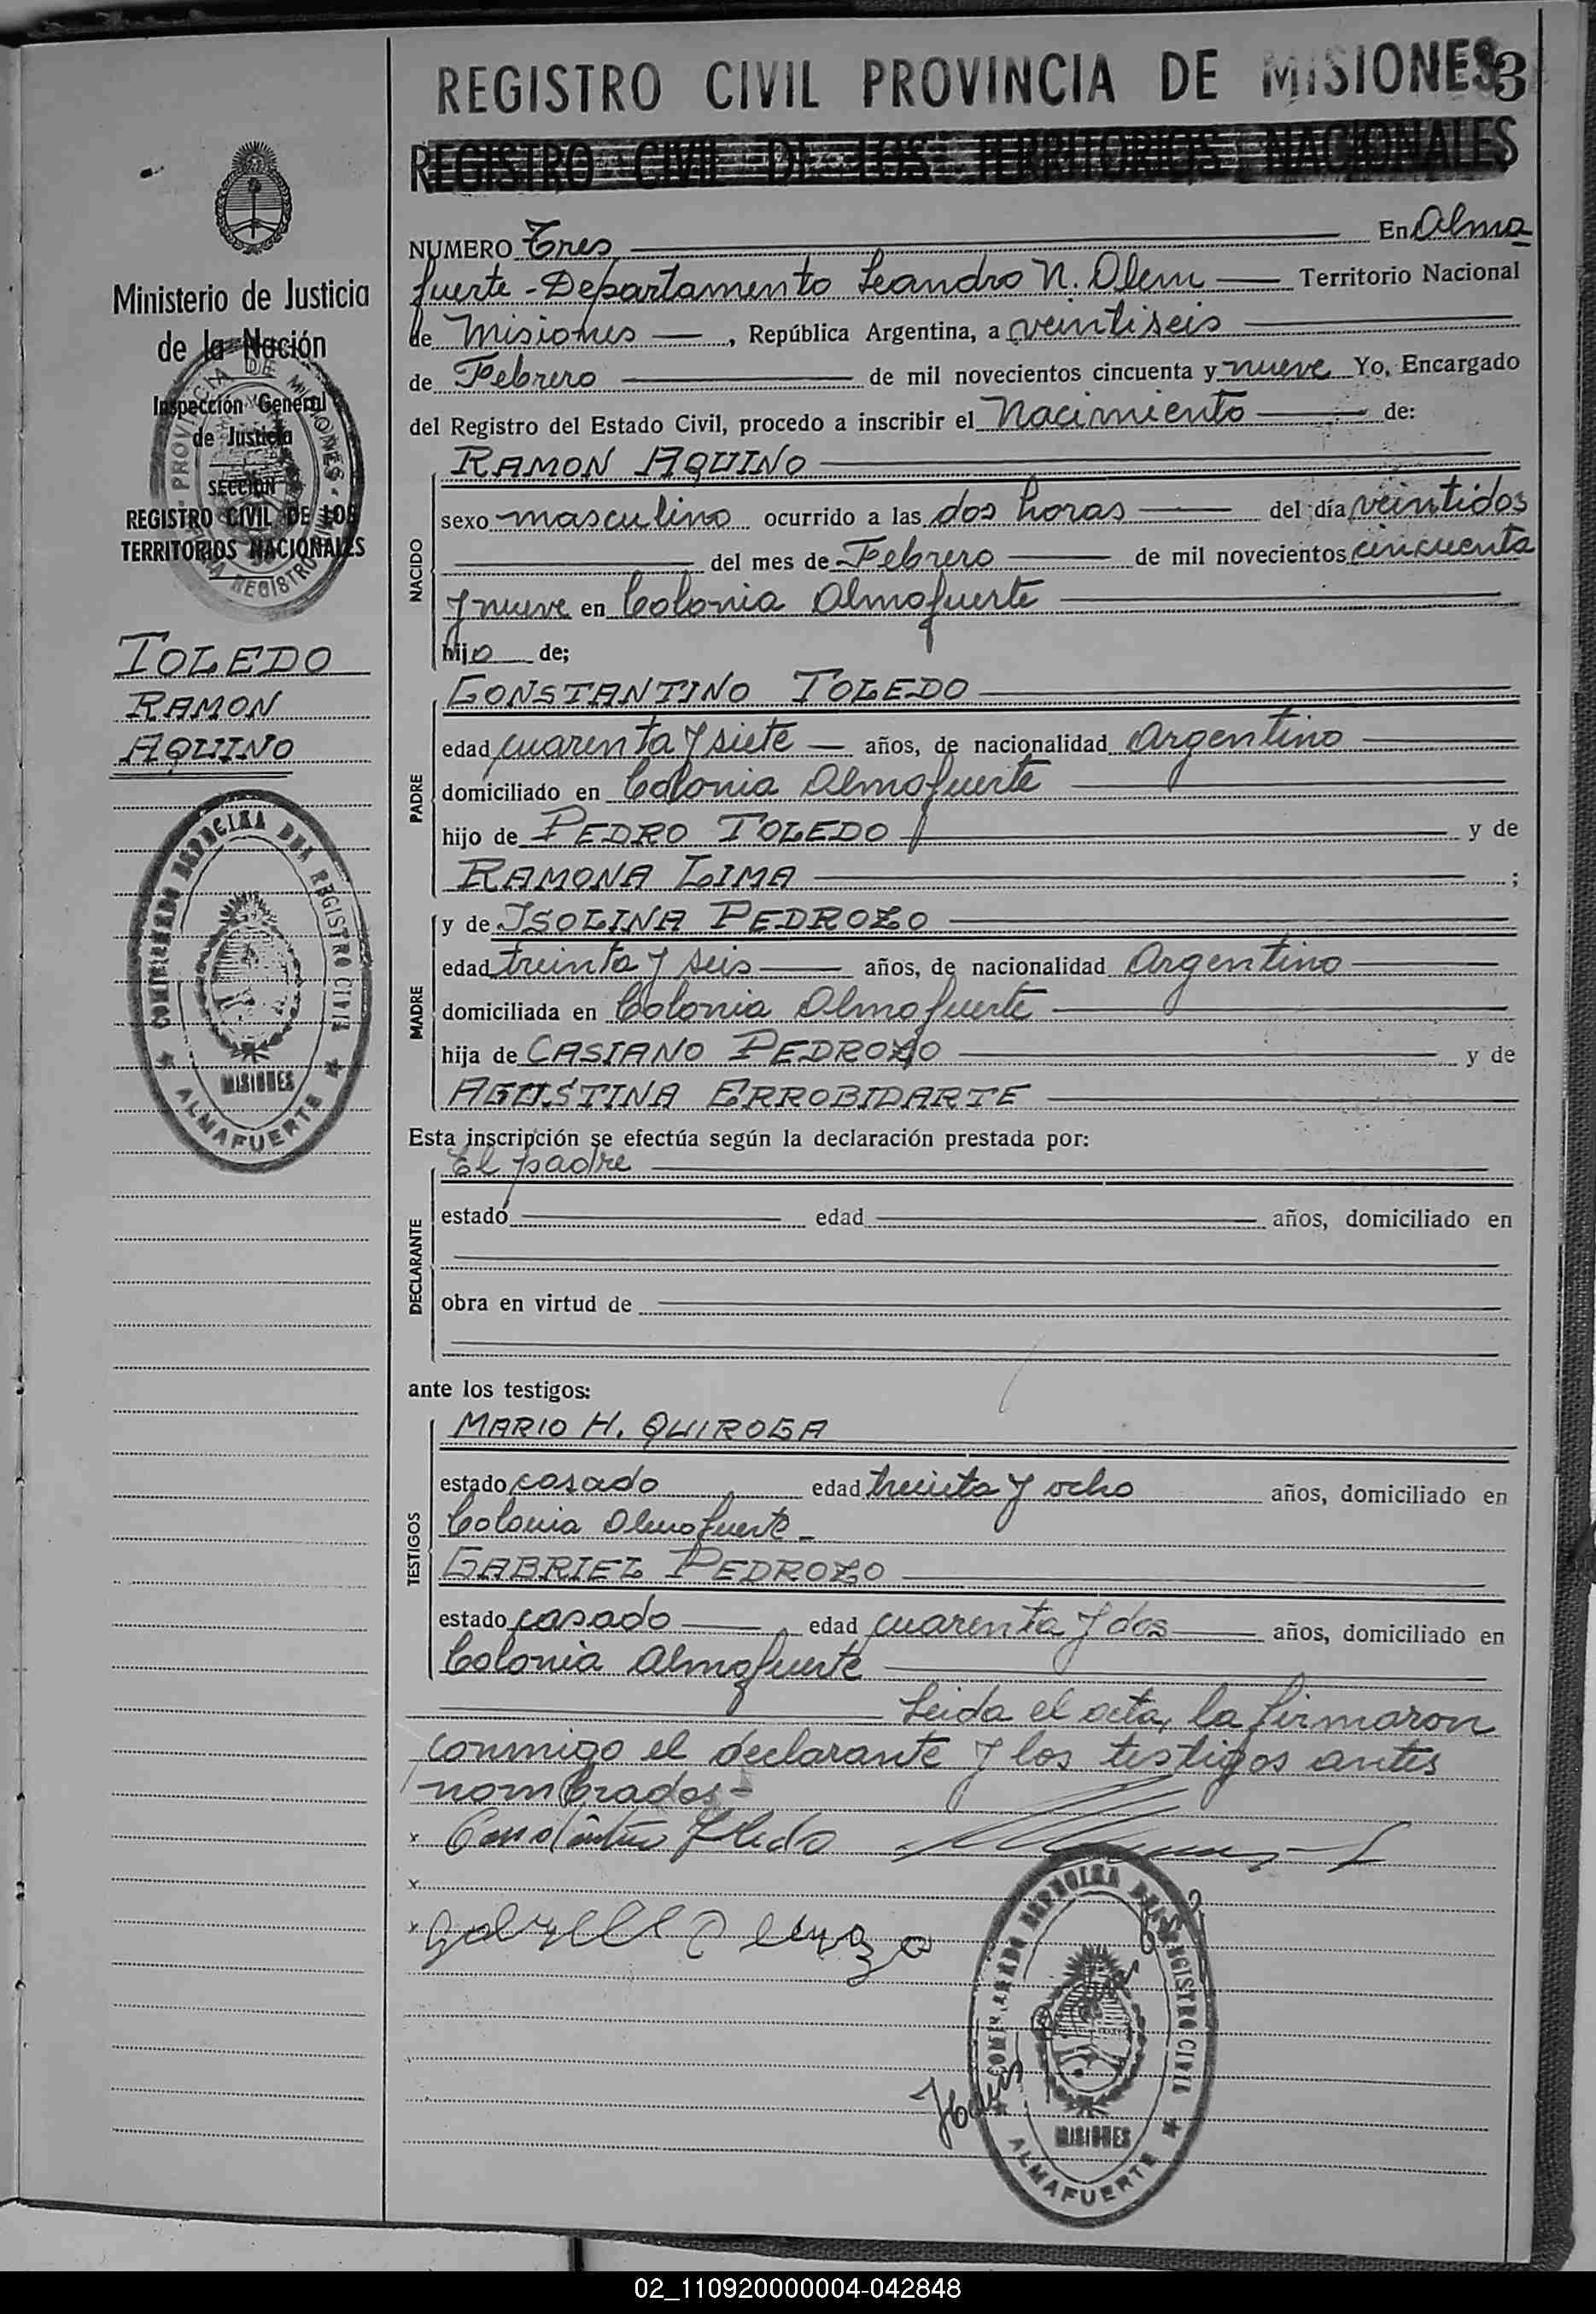 REGISTRO CIVIL PROVINCIA DE MISIONES 3
REGISTRO CIVIL DE LOS TERRITORIOS NACIONALES
Ministerio de Justicia
de la Nación
Inspección General
de Justicia
SECCION
REGISTRO CIVIL DE LOS
TERRITORIOS NACIONALES
PROVINCIA DE MISIONES
TOLEDO
RAMON
AQUINO
REGISTRO CIVIL
MISIONES
ALMAFUERTE
NUMERO Tres En Alma
fuerte - Departamento Leandro N. Alem Territorio Nacional
de Misiones , República Argentina, a veintiseis
de Febrero de mil novecientos cincuenta y nueve Yo, Encargado
del Registro del Estado Civil, procedo a inscribir el Nacimiento de:
NACIDO
RAMON AQUINO
sexo masculino ocurrido a las dos horas del día veintidos
del mes de Febrero de mil novecientos cincuenta
y nueve en Colonia Almafuerte
hijo de;
PADRE
CONSTANTINO TOLEDO
edad cuarenta y siete años, de nacionalidad Argentino
domiciliado en Colonia Almafuerte
hijo de PEDRO TOLEDO y de
RAMONA LIMA ;
MADRE
y de ISOLINA PEDROZO
edad treinta y seis años, de nacionalidad Argentino
domiciliada en Colonia Almafuerte
hija de CASIANO PEDROZO y de
AGUSTINA ERROBIDARTE
Esta inscripción se efectúa según la declaración prestada por:
DECLARANTE
El padre
estado edad años, domiciliado en
obra en virtud de
ante los testigos:
TESTIGOS
MARIO H. QUIROGA
estado casado edad treinta y ocho años, domiciliado en
Colonia Almafuerte -
GABRIEL PEDROZO
estado casado edad cuarenta y dos años, domiciliado en
Colonia Almafuerte
Leida el acta, la firmaron
conmigo el declarante y los testigos antes
nombrados -
x Constantino Toledo
x
x
REGISTRO CIVIL
MISIONES
ALMAFUERTE
02_110920000004-042848